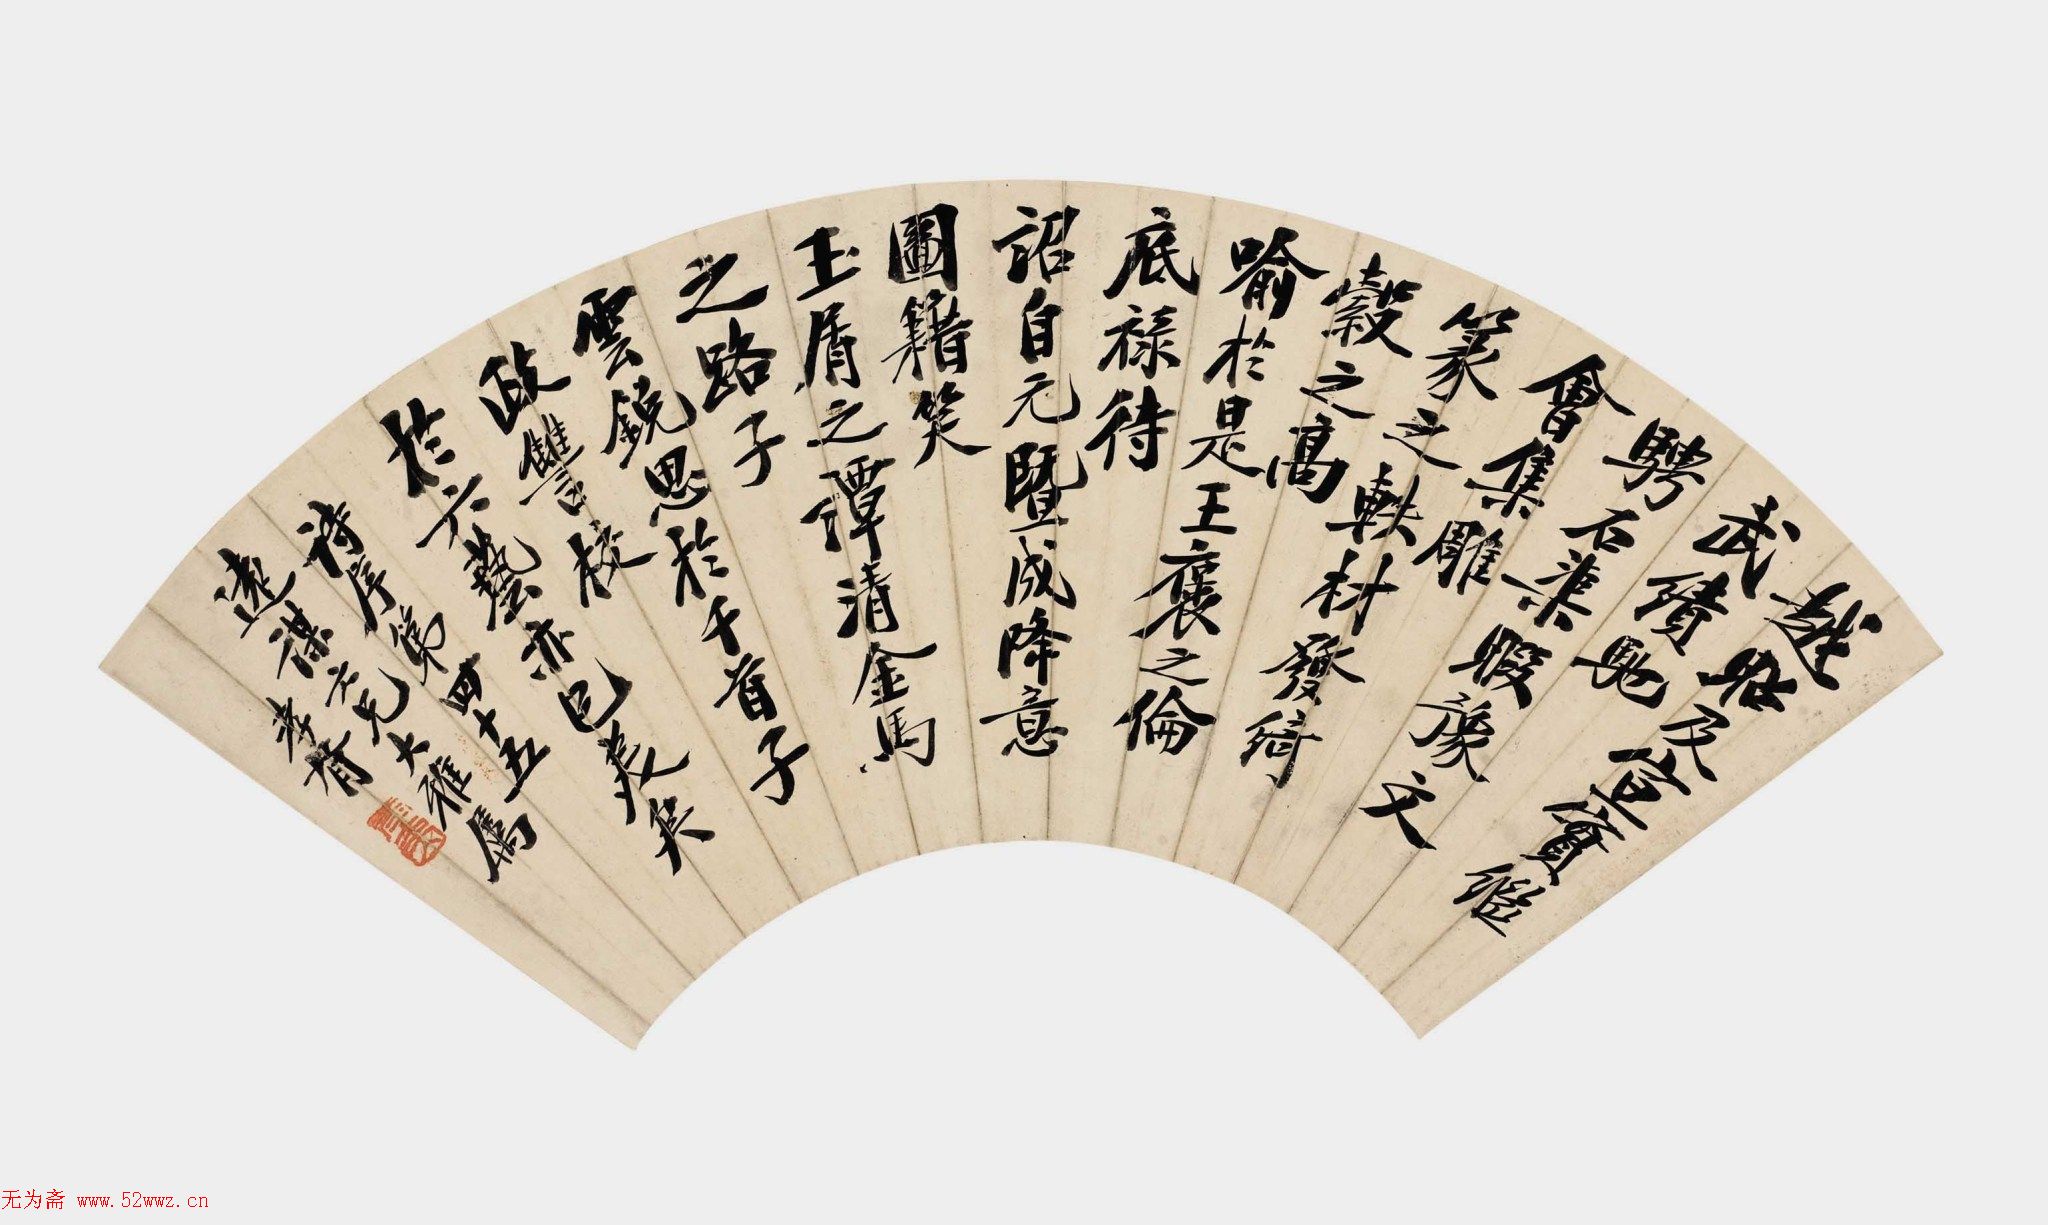 越昭及宣實繼
武績馳
騁石渠暇豫文
會集雕
篆之軼材發綺
縠之高
喻於是王褒之倫
底祿待
詔自元暨成降意
圖籍美
玉屑之譚清金馬
之路子
雲銳思於千首子
政讎校
於六藝亦已美矣
時序第四十五
遠謀仁兄大雅屬
孝胥
无为斋 www.52wwz.cn